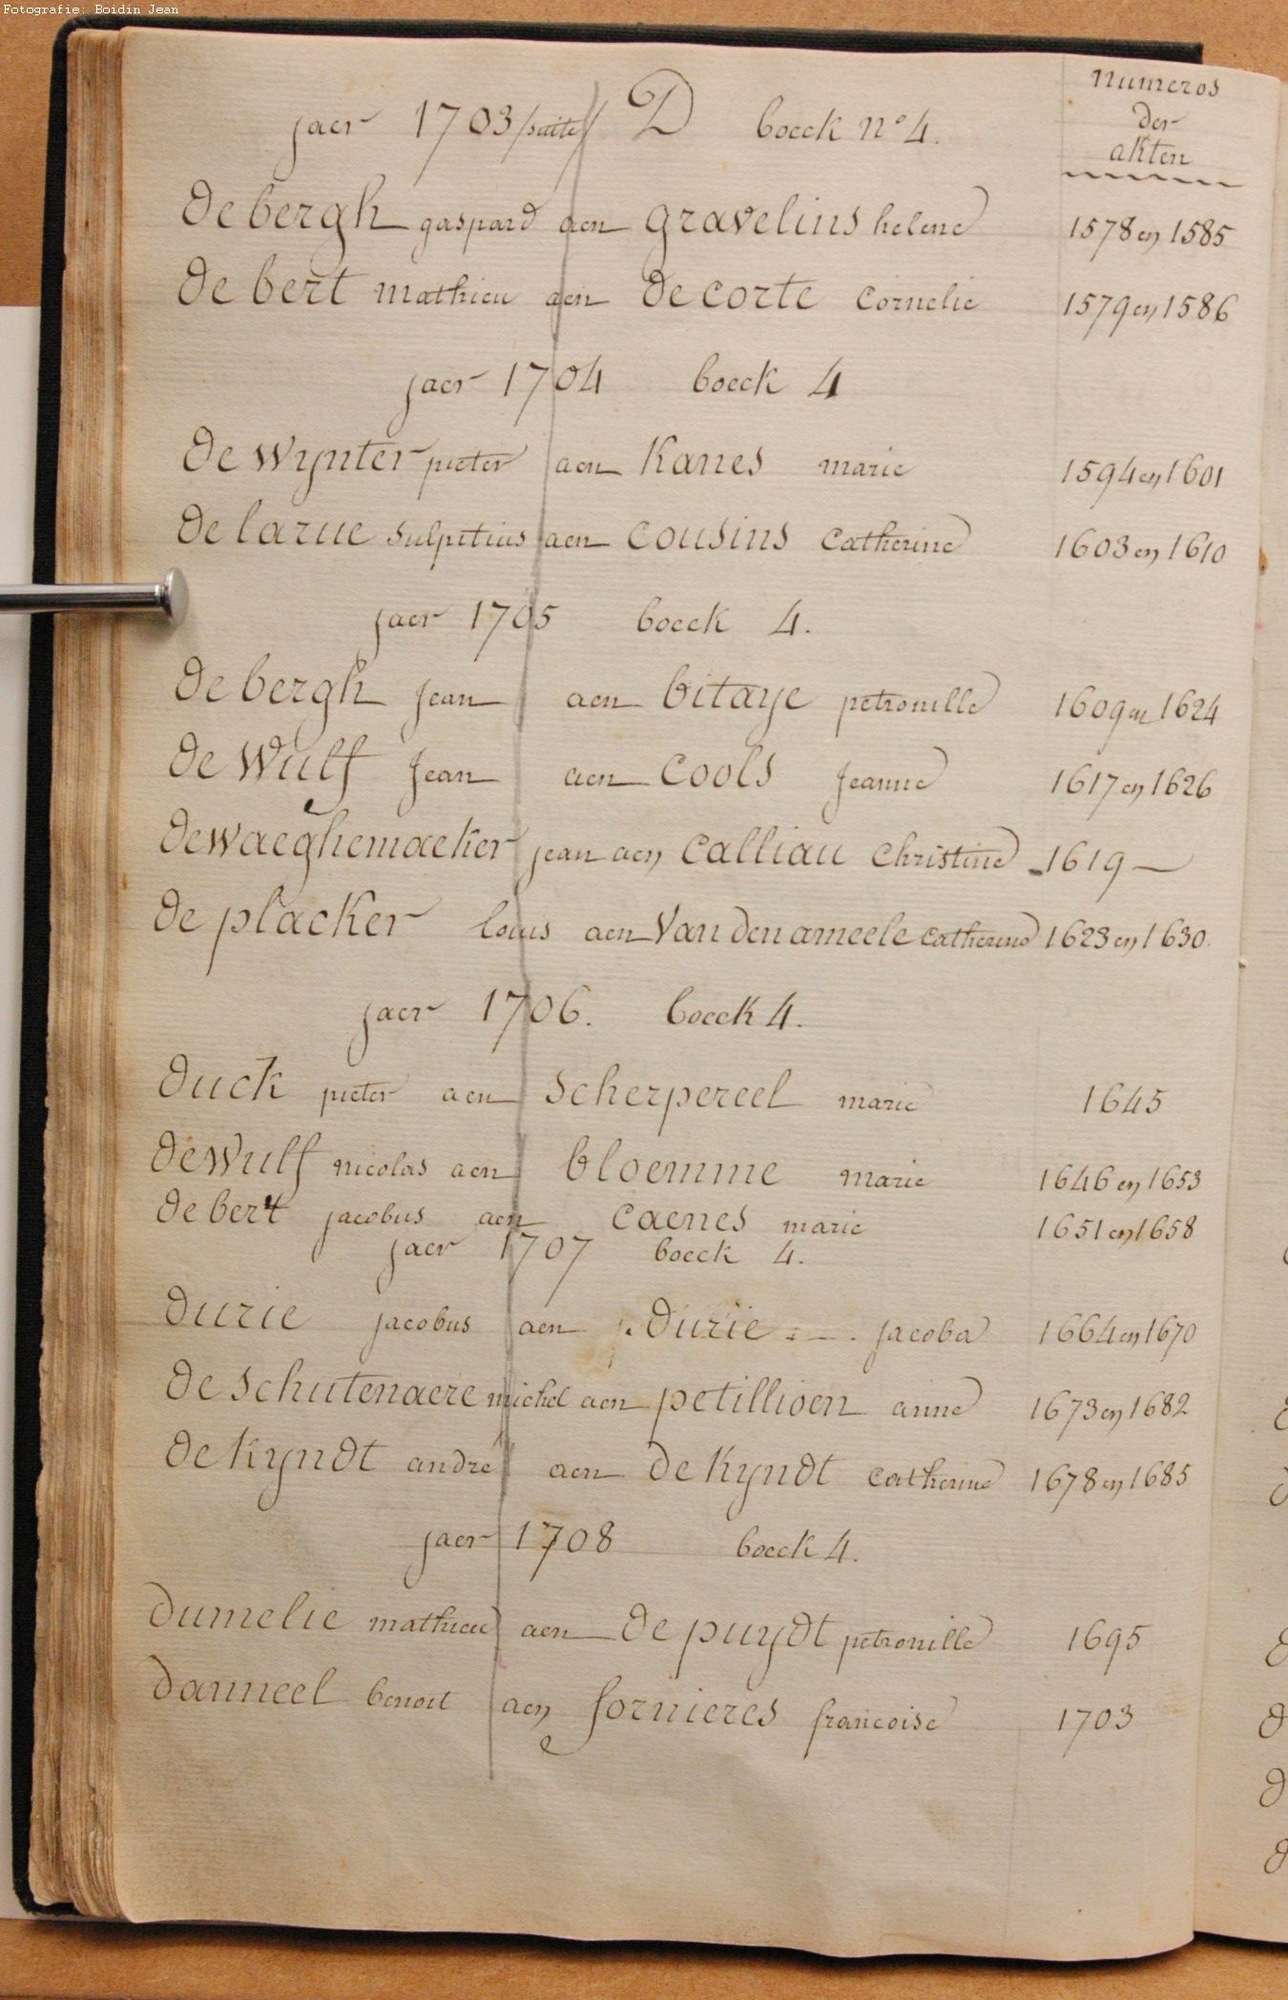 Fotografie: Boidin Jean
jaer 1703 /suite/ D boeck n° 4.
numeros
der
akten
de bergh gaspard aen gravelins helene 1578 en 1585
de bert mathieu aen de corte cornelie 1579 en 1586
jaer 1704 boeck 4
de wynter pieter aen kanes marie 1594 en 1601
de larue sulpitius aen cousins catherine 1603 en 1610
jaer 1705 boeck 4.
de bergh jean aen bitaye petronille 1609 en 1624
de wulf jean aen cools jeanne 1617 en 1626
dewaeghemaeker jean aen calliau christine 1619 —
de placker louis aen Van den ameele catherine 1623 en 1630.
jaer 1706. boeck 4.
duck pieter aen scherpereel marie 1645
dewulf nicolas aen bloemme marie 1646 en 1653
de bert jacobus aen caenes marie 1651 en 1658
jaer 1707 boeck 4.
durie jacobus aen durie jacoba 1664 en 1670
de schutenaere michel aen petillioen anne 1673 en 1682
de kyndt andré aen de kyndt catherine 1678 en 1685
jaer 1708 boeck 4.
dumelie mathieu aen de puydt petronille 1695
danneel benoit aen fornieres francoise 1703